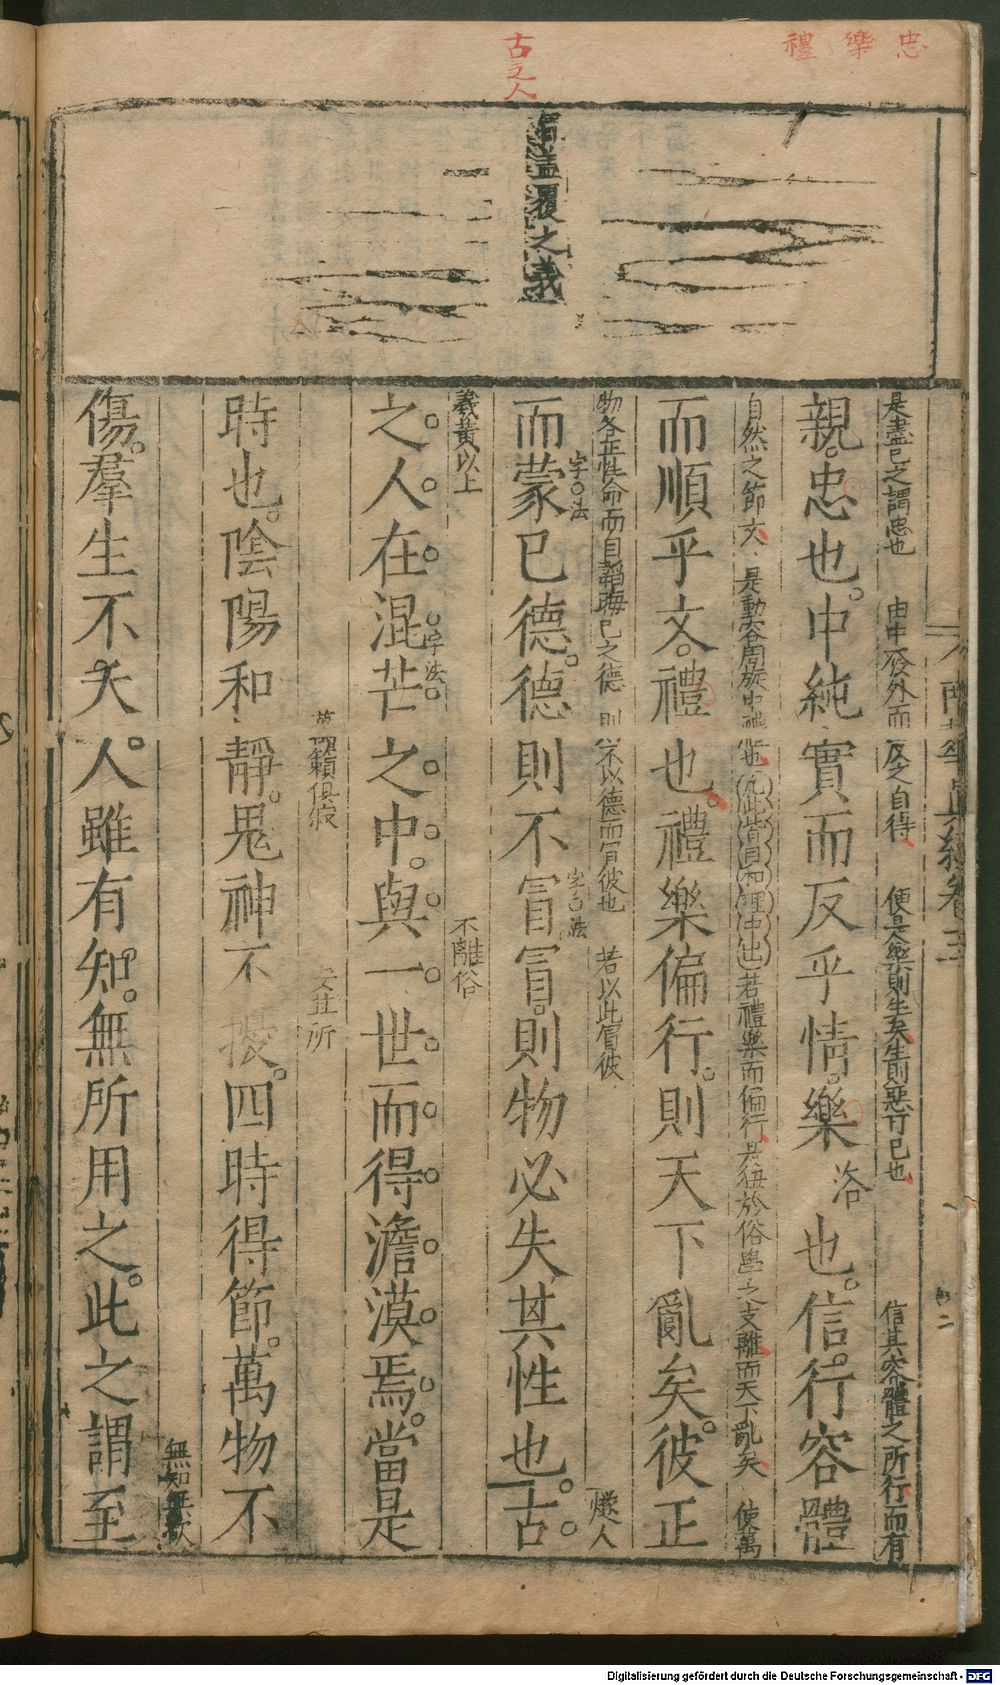 忠 樂 禮
古之人
蓋覆之義
南華真經卷三
是盡己之謂忠也 由中發外而反之自得 便是樂則生矣生則惡可已也 信其容體之所行而有
親忠也中純實而反乎情樂洛也信行容體
自然之節文 是動容周旋中禮也 若禮樂而偏行是徇於俗學之支離而天下亂矣 使萬
而順乎文禮也禮樂偏行則天下亂矣彼正
物各正性命而自韜晦己之德 則不以德而冒彼也 若以此冒彼 燧人
而蒙已德德則不冒冒則物必失其性也古
字法
字法
羲黃以上 不離俗
之人在混芒之中與一世而得澹漠焉當是
字法
萬籟俱寂
時也陰陽和靜鬼神不擾四時得節萬物不
無知無欲
傷羣生不夭人雖有知無所用之此之謂至
Digitalisierung gefördert durch die Deutsche Forschungsgemeinschaft - DFG